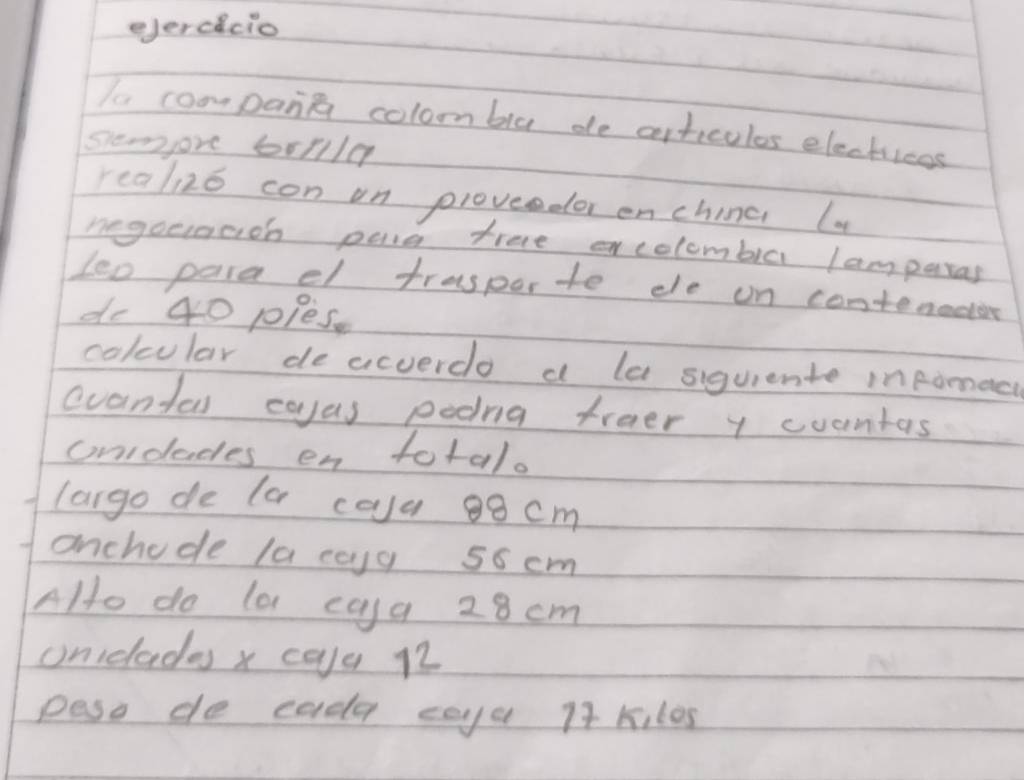 ejercicio
la compañia colombia de articulos electricos
siempre brilla
realizó con un proveedor en china la
negociación para traer a colombia lamparas
led para el trasporte de un contenedor
de 40 pies.
calcular de acuerdo a la siguiente infomaci
cuantas cajas podria traer y cuantas
unidades en total.
largo de la caja 88 cm
ancho de la caja 56 cm
Alto de la caja 28 cm
unidades x caja 12
peso de cada caja 17 kilos